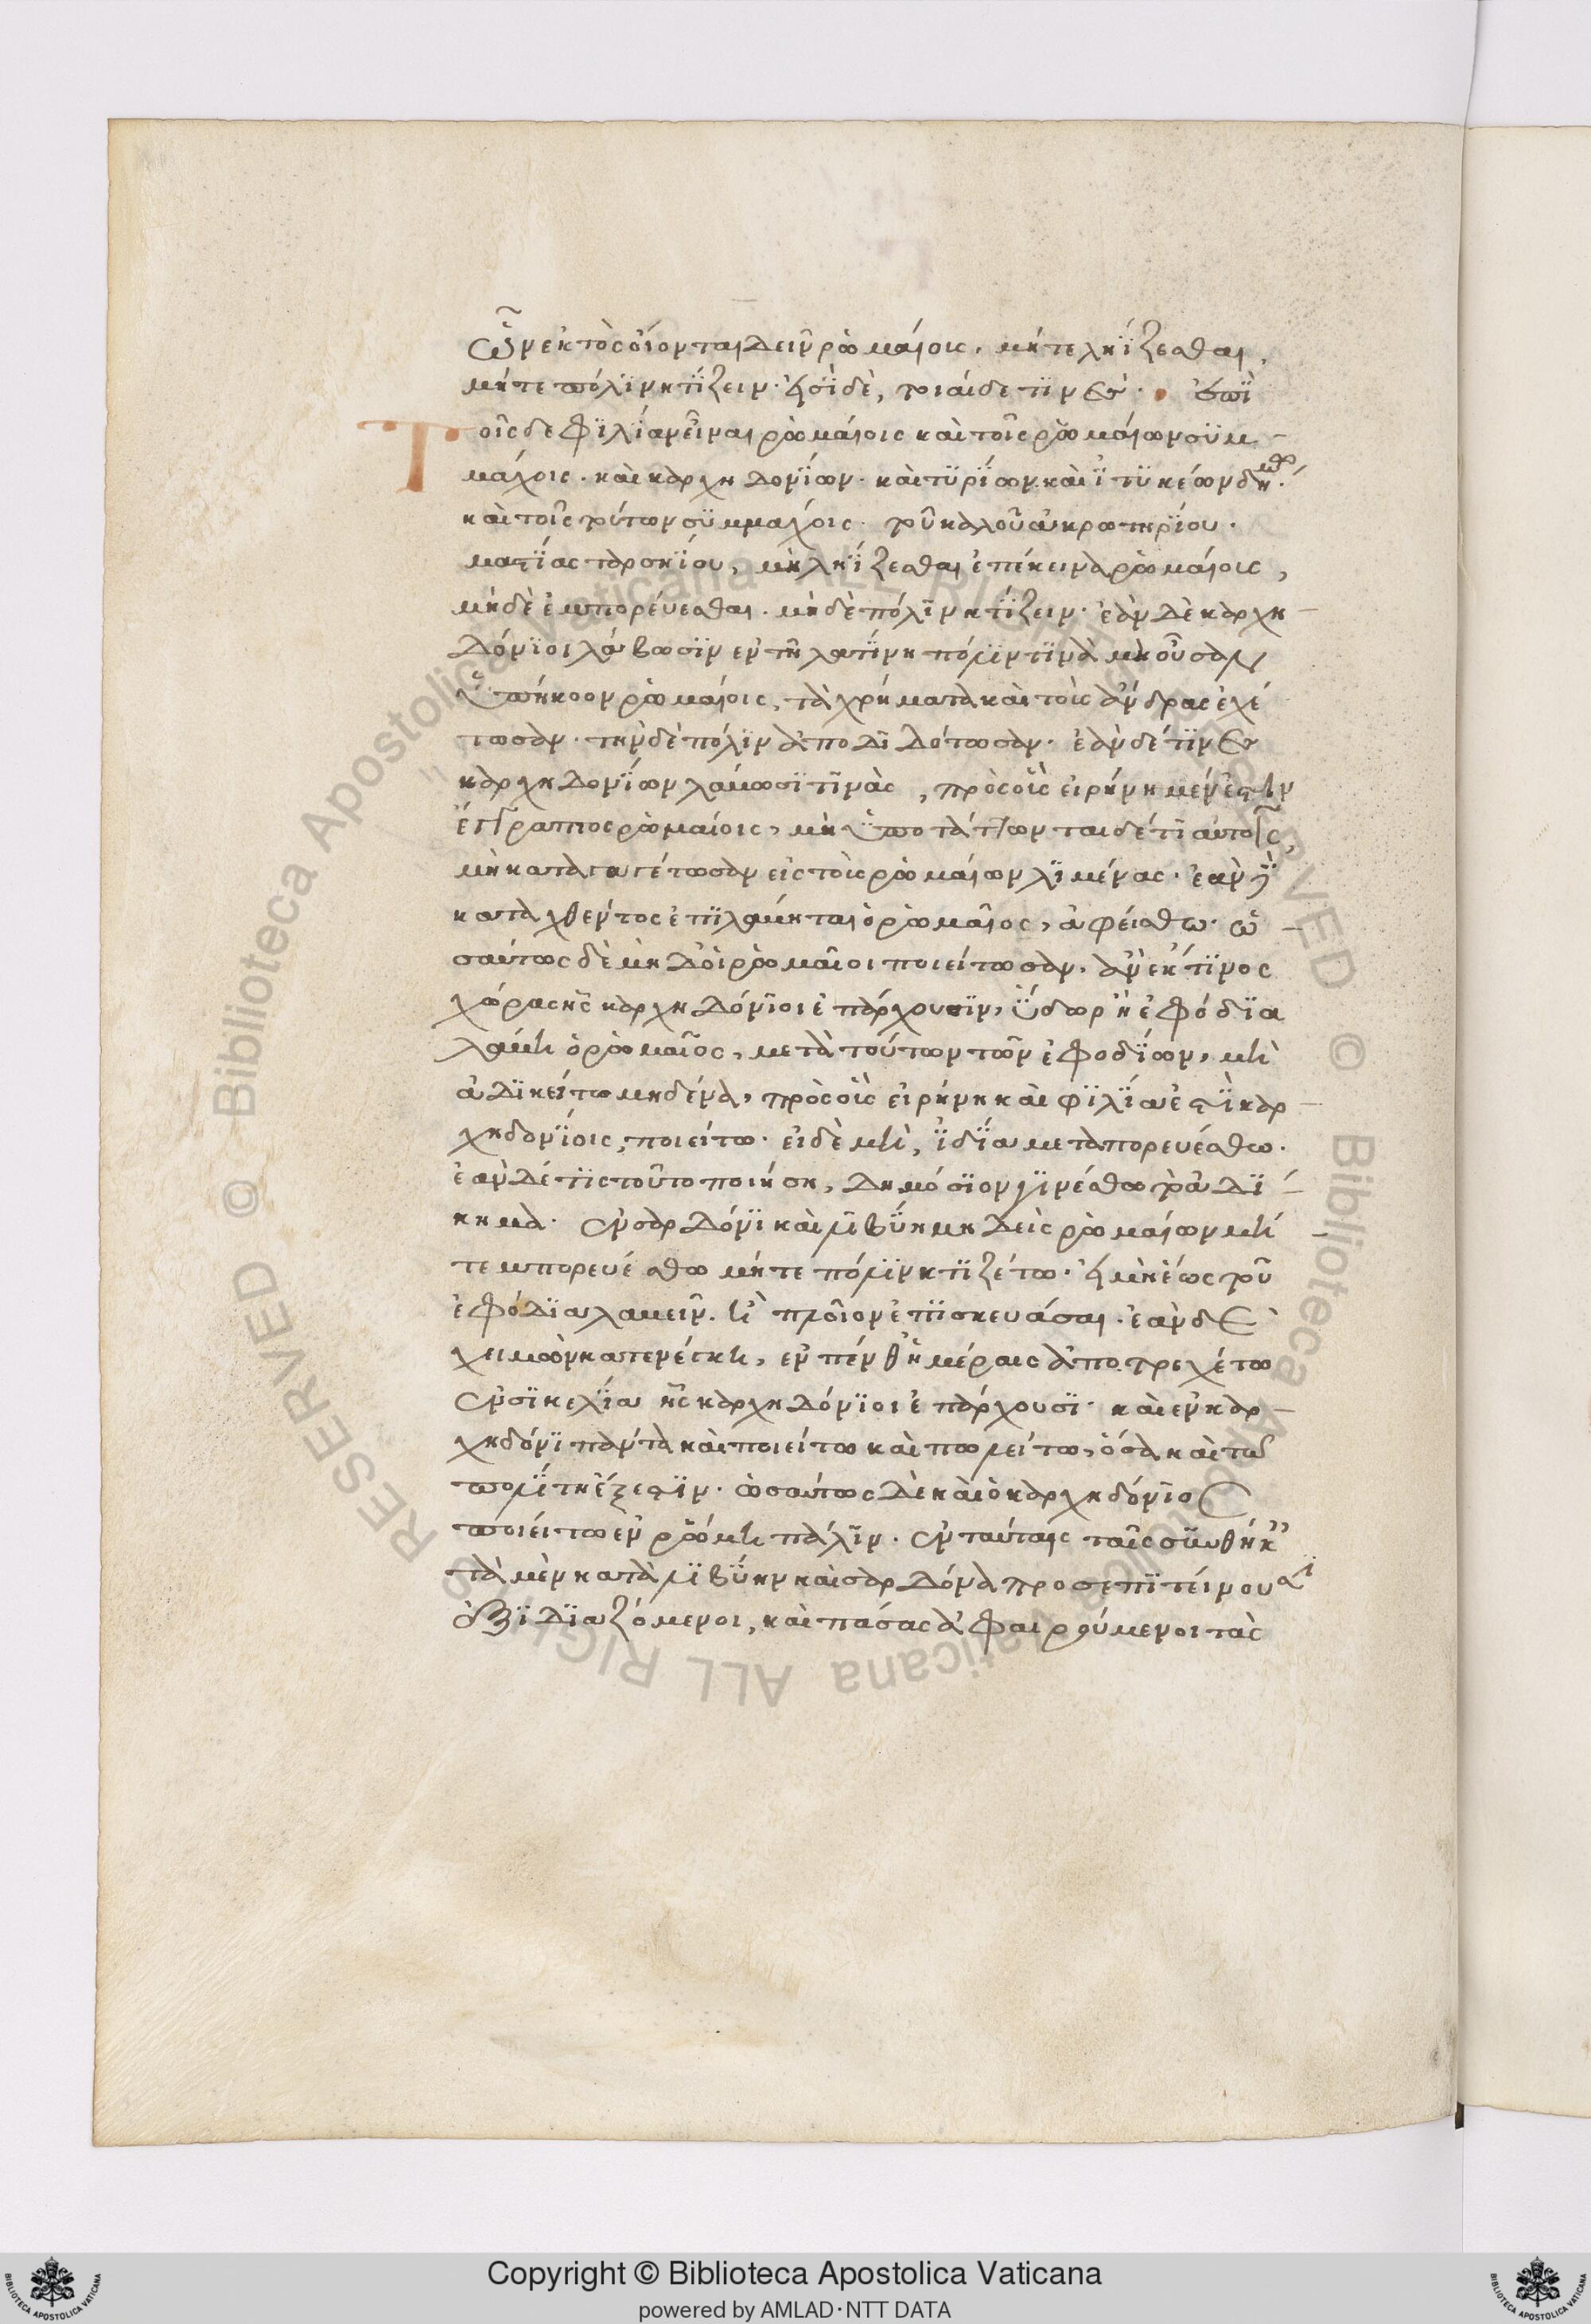 ὧν ἐκτὸς οἴονται δεῖν ῥωμαίοις, μήτε ληΐζεσθαι,
μήτε πόλϊν κτίζειν· ἠσὶ δὲ, τοιαίδε τϊνες· ἐπὶ
Τοῖσδε φϊλίαν εἶναι ῥωμαίοις καὶ τοῖς ῥωμαίων συμ
μάχοις· καὶ καρχηδονίων· καὶ τυρίων καὶ ἰτυκέων δήμω·
καὶ τοῖς τούτων συμμάχοις· τοῦ καλοῦ ἀκρωτηρίου·
μαστίας ταρσηίου, μὴ ληΐζεσθαι ἐπέκεινα ῥωμαίοις,
μηδὲ ἐμπορεύεσθαι· μηδὲ πόλιν κτίζειν· ἐὰν δὲ καρχη
δόνϊοι λάβωσϊν ἐν τῆ λατίνη πόλϊν τϊνὰ μὴ οὖσαν
ὑπήκοον ῥωμαίοις, τὰ χρήματα καὶ τοὺς ἄνδρας ἐχέ
τωσαν· τὴν δὲ πόλϊν ἀποδϊδότωσαν· ἐὰν δέ τϊνες
καρχηδονίων λάβωσϊ τϊνὰς, πρὸς οὓς εἰρήνη μέν ἐστιν
ἔγγραπτος ῥωμαίοις, μὴ ὑποτάττωνται δέ τι αὐτοῖς,
μὴ καταγαγέτωσαν εἰς τοὺς ῥωμαίων λϊμένας· ἐὰν δὲ
καταχθέντος ἐπϊλάβηται ὁ ῥωμαῖος, ἀφείσθω· ὡ
σαύτως δὲ μηδ οἱ ῥωμαῖοι ποιείτωσαν· ἂν ἔκ τϊνος
χώρας ἧς καρχηδόνϊοι ἐπάρχουσϊν, ὕδωρ ἢ ἐφόδϊα
λάβη ὁ ῥωμαῖος, μετὰ τούτων τῶν ἐφοδίων, μὴ
ἀδϊκείτω μηδένα, πρὸς οὓς εἰρήνη καὶ φϊλία ἐστὶ καρ
χηδονίοις, ποιείτω· εἰ δὲ μὴ, ἰδία μεταπορευέσθω·
ἐὰν δέ τϊς τοῦτο ποιήση, δημόσϊον γϊνέσθω τὸ ἀδί
κημα· ἐν σαρδόνϊ καὶ λϊβύη μηδεὶς ῥωμαίων μή
τ ἐμπορευέσθω μήτε πόλϊν κτϊζέτω· εἰ μὴ ἕως τοῦ
ἐφόδϊα λαβεῖν· ἢ πλοῖον ἐπϊσκευάσαι· ἐὰν δὲ
χειμὼν κατενέγκη, ἐν πένθ ἡμέραις ἀποτρεχέτω
ἐν σϊκελία ἧς καρχηδόνϊοι ἐπάρχουσϊ· καὶ ἐν καρ
χηδόνϊ πάντα καὶ ποιείτω καὶ πωλείτω, ὅσα καὶ τῶ
πολίτη ἔξεστϊν· ὡσαύτως δὲ καὶ ὁ καρχηδόνϊος
ποιείτω ἐν ῥώμη πάλϊν· ἐν ταύταις ταῖς συνθήκ
τὰ μὲν κατὰ λϊβύην καὶ σαρδόνα προσεπϊτείνουσϊ
ἐξϊδϊαζόμενοι, καὶ πάσας ἀφαιρούμενοι τὰς
Copyright © Biblioteca Apostolica Vaticana
powered by AMLAD·NTT DATA